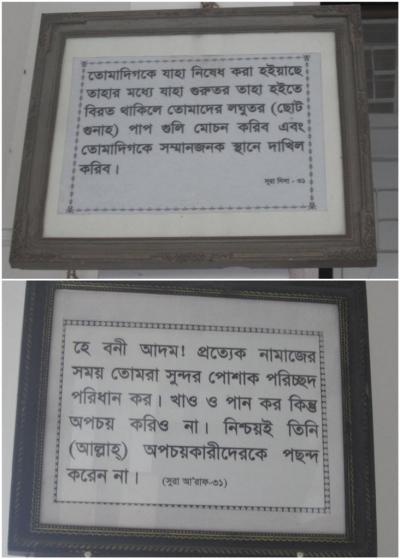 তোমাদিগকে যাহা নিষেধ করা হইয়াছে
তাহার মধ্যে যাহা গুরুতর তাহা হইতে
বিরত থাকিলে তোমাদের লঘুতর (ছোট
গুনাহ) পাপ গুলি মোচন করিব এবং
তোমাদিগকে সম্মানজনক স্থানে দাখিল
করিব।
সূরা নিসা - ৩১
হে বনী আদম! প্রত্যেক নামাজের
সময় তোমরা সুন্দর পোশাক পরিচ্ছদ
পরিধান কর। খাও ও পান কর কিন্তু
অপচয় করিও না। নিশ্চয়ই তিনি
(আল্লাহ্) অপচয়কারীদেরকে পছন্দ
করেন না। (সূরা আ'রাফ-৩১)